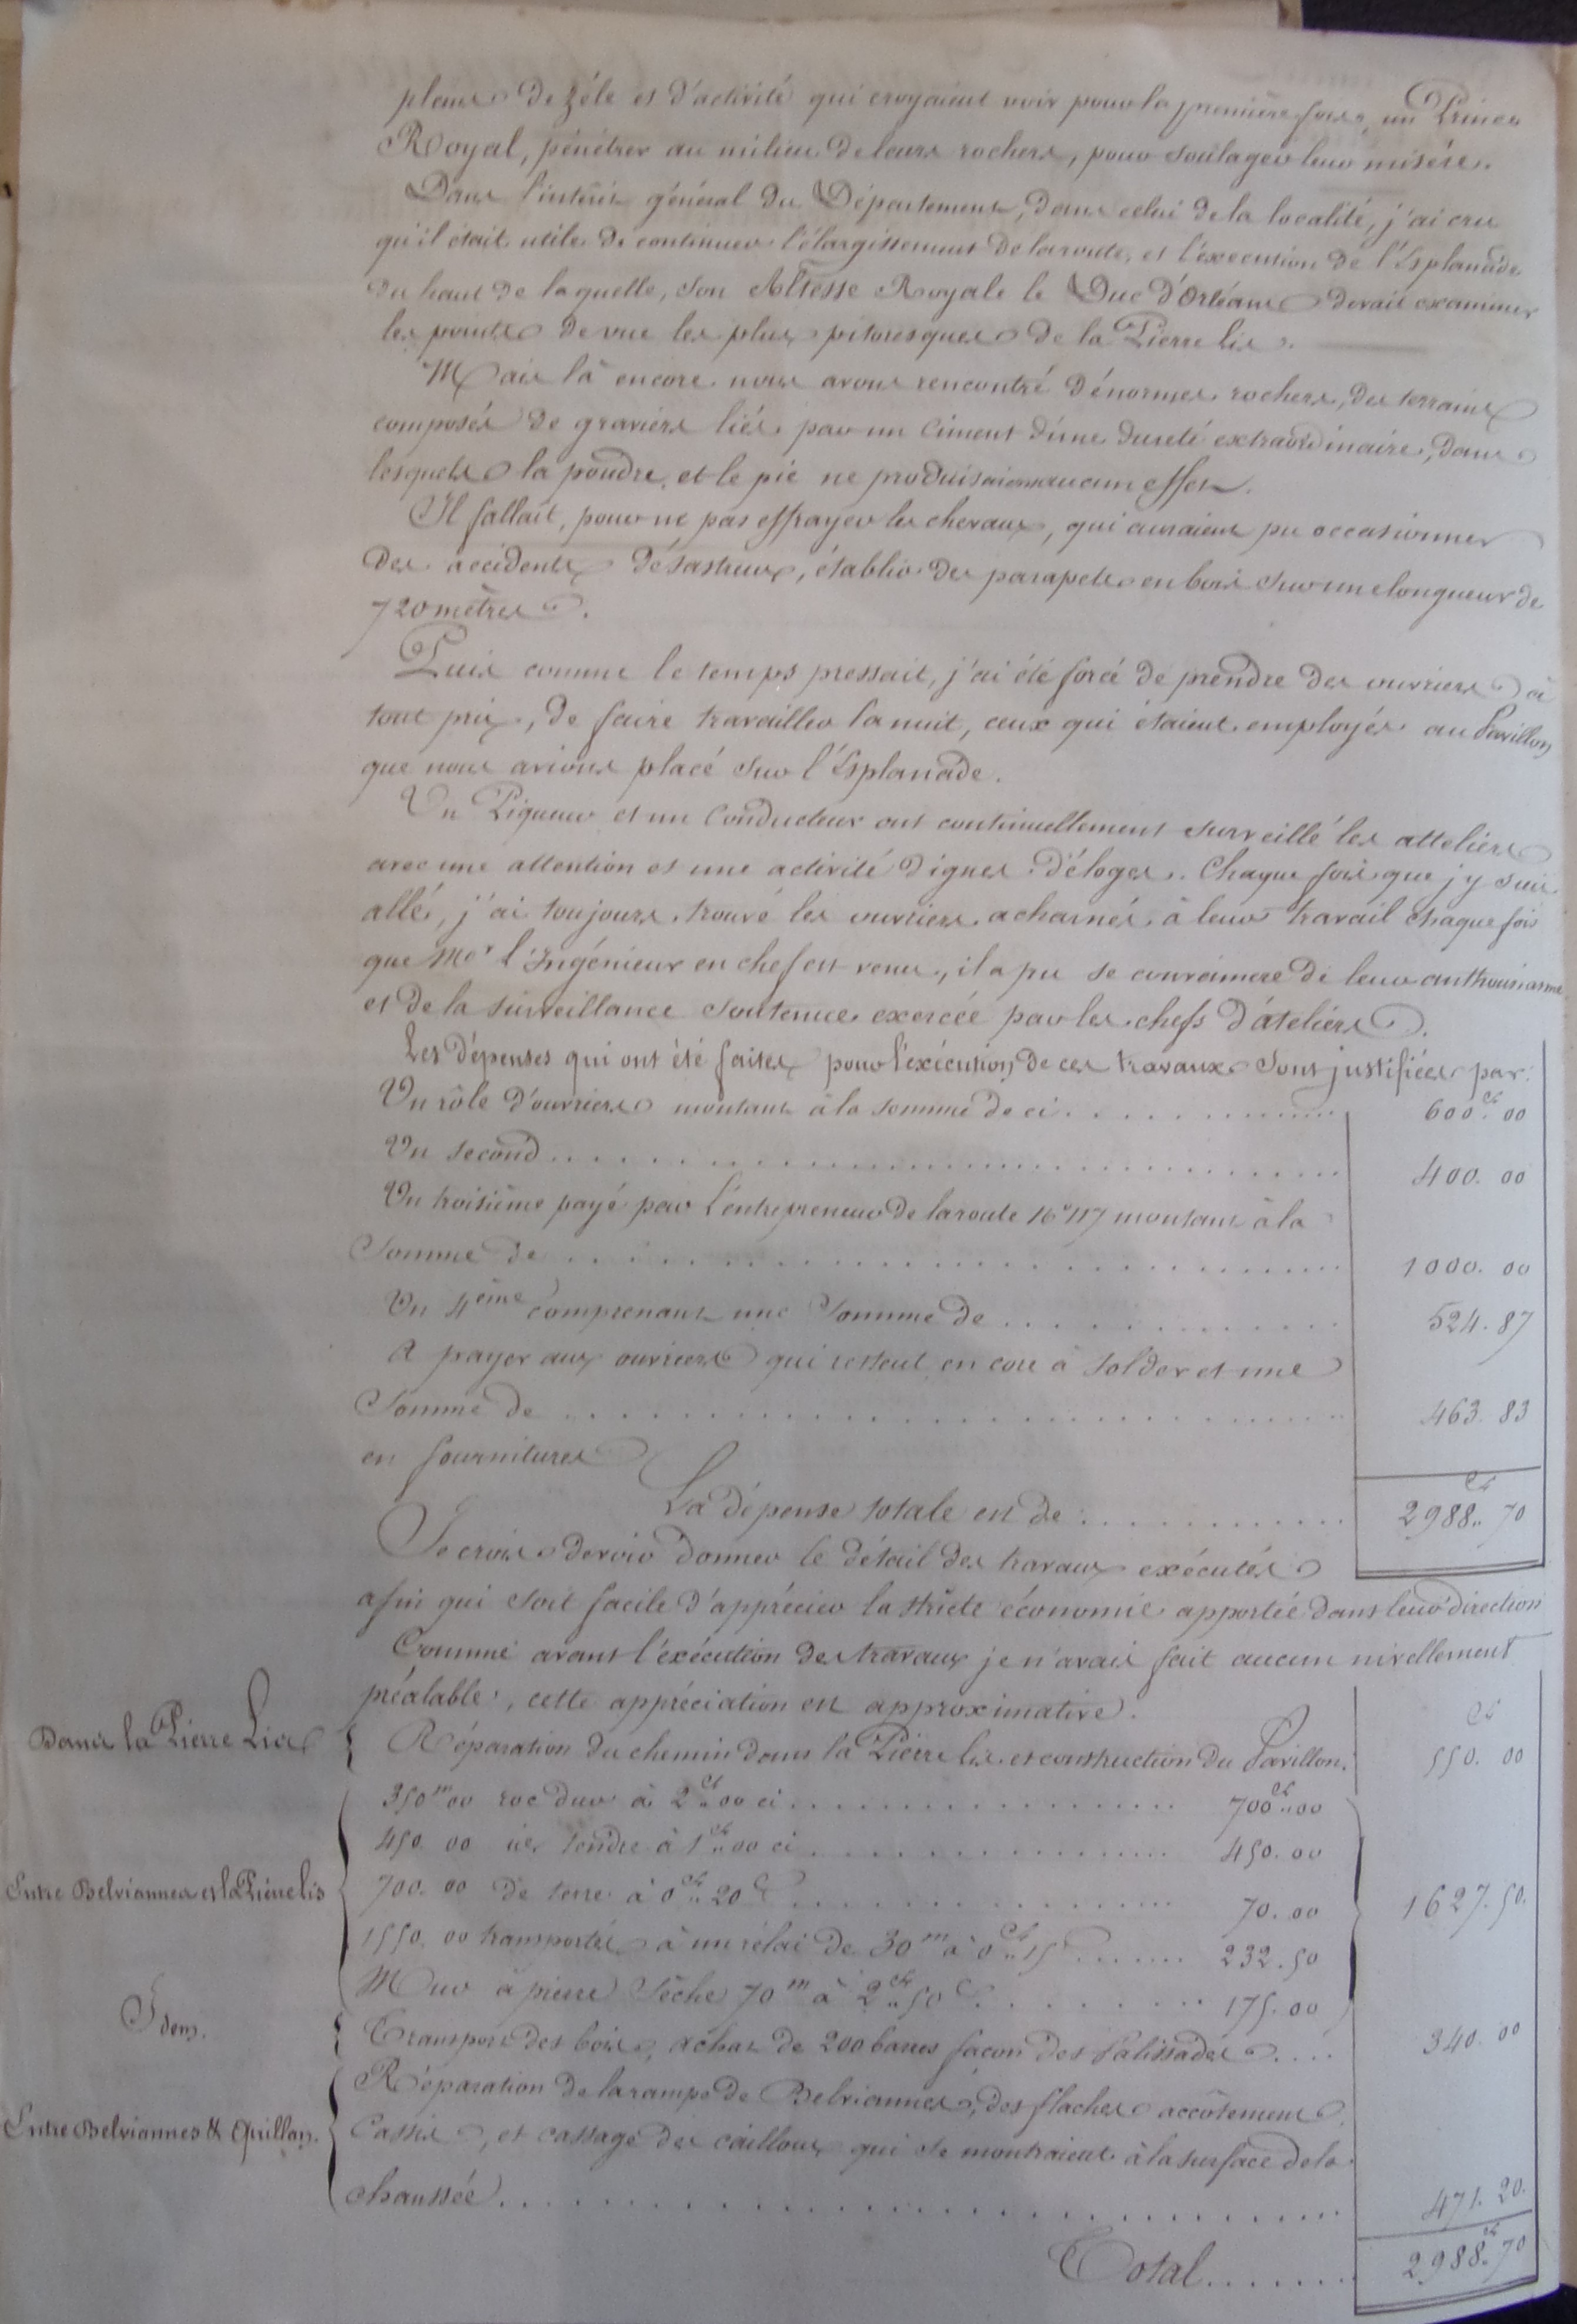 pleins de zéle et d'activité qui croyaient voir pour la première fois, un Prince
Royal, pénétrer au milieu de leurs rochers, pour soulager leur misére.
Dans l'intérêt général du Département, dans celui de la localité, j'ai cru
qu'il était utile de continuer l'élargissement de la route, et l'éxecution de l'Esplanade
du haut de laquelle, son Altesse Royale le Duc d'Orléans devait examiner
les points de vue les plus pitoresques de la Pierre Lis.
Mais là encore nous avons rencontré d'énormes rochers, des terrains
composés de graviers liés par un ciment d'une dureté extraordinaire, dans
lesquels la poudre, et le pic ne produisaient aucun effet.
Il fallait, pour ne pas effrayer les chevaux, qui auraient pu occasionner
des accidents désastreux, établir des parapets en bois sur une longueur de
720 mètres.
Puis comme le temps pressait, j'ai été forcé de prendre des ouvriers à
tout prix, de faire travailler la nuit, ceux qui étaient employés au Pavillon
que nous avions placé sur l'Esplanade.
Un Piqueur et un Conducteur ont continuellement surveillé les atteliers
avec une attention et une activité dignes d'éloges. Chaque fois que j'y suis
allé, j'ai toujours trouvé les ouvriers acharnés à leur travail chaque fois
que Mr l'Ingénieur en chef est venu, il a pu se convaincre de leur anthousiasme
et de la surveillance soutenue exercée par les chefs d'ateliers.
Les dépenses qui ont été faites pour l'exécution de ces travaux sont justifiées par:
Un rôle d'ouvriers montant à la somme de ci . . . . 600 fr. 00
Un second . . . . 400. 00
Un troisième payé par l'entrepreneur de la route N° 117 montant à la
Somme de . . . . 1000. 00
Un 4ème comprenant une Somme de . . . . 524. 87
A payer aux ouvriers qui restent encore à solder et une
Somme de . . . . 463. 83
en fournitures
La dépense totale est de . . . . 2988 fr. 70
Je crois devoir donner le détail des travaux exécutés
afin qui soit facile d'apprécier la stricte économie apportée dans leur direction
Comme avant l'éxécution des travaux je n'avais fait aucun nivellement
préalable, cette appréciation est approximative.
Dans la Pierre Lis { Réparation du chemin dans la Pierre lis et construction du Pavillon. 550 fr. 00
350m 00 roc dur à 2 fr. 00 ci . . . . 700 fr. 00
450. 00 tendre à 1 fr. 00 ci . . . . 450. 00
Entre Belviannes et la Pierre lis 700. 00 de terre à 0 fr. 20 c . . . . 70. 00 1627. 50.
1550. 00 transportés à un rélai de 30m à 0 fr. 15 . . . . 232. 50
Mur à pierre Sèche 70m à 2 fr. 50 c. . . . . 175. 00
Idem. { Transport des bois, achat de 200 barres façon des Palissades . . . . 340. 00
Réparation de la rampe de Belviannes, des flaches accotements
Entre Belviannes & Quillan. Cassis, et cassage des cailloux qui se montraient à la surface de la
chaussée . . . . 471. 20.
Total . . . . 2988 fr. 70